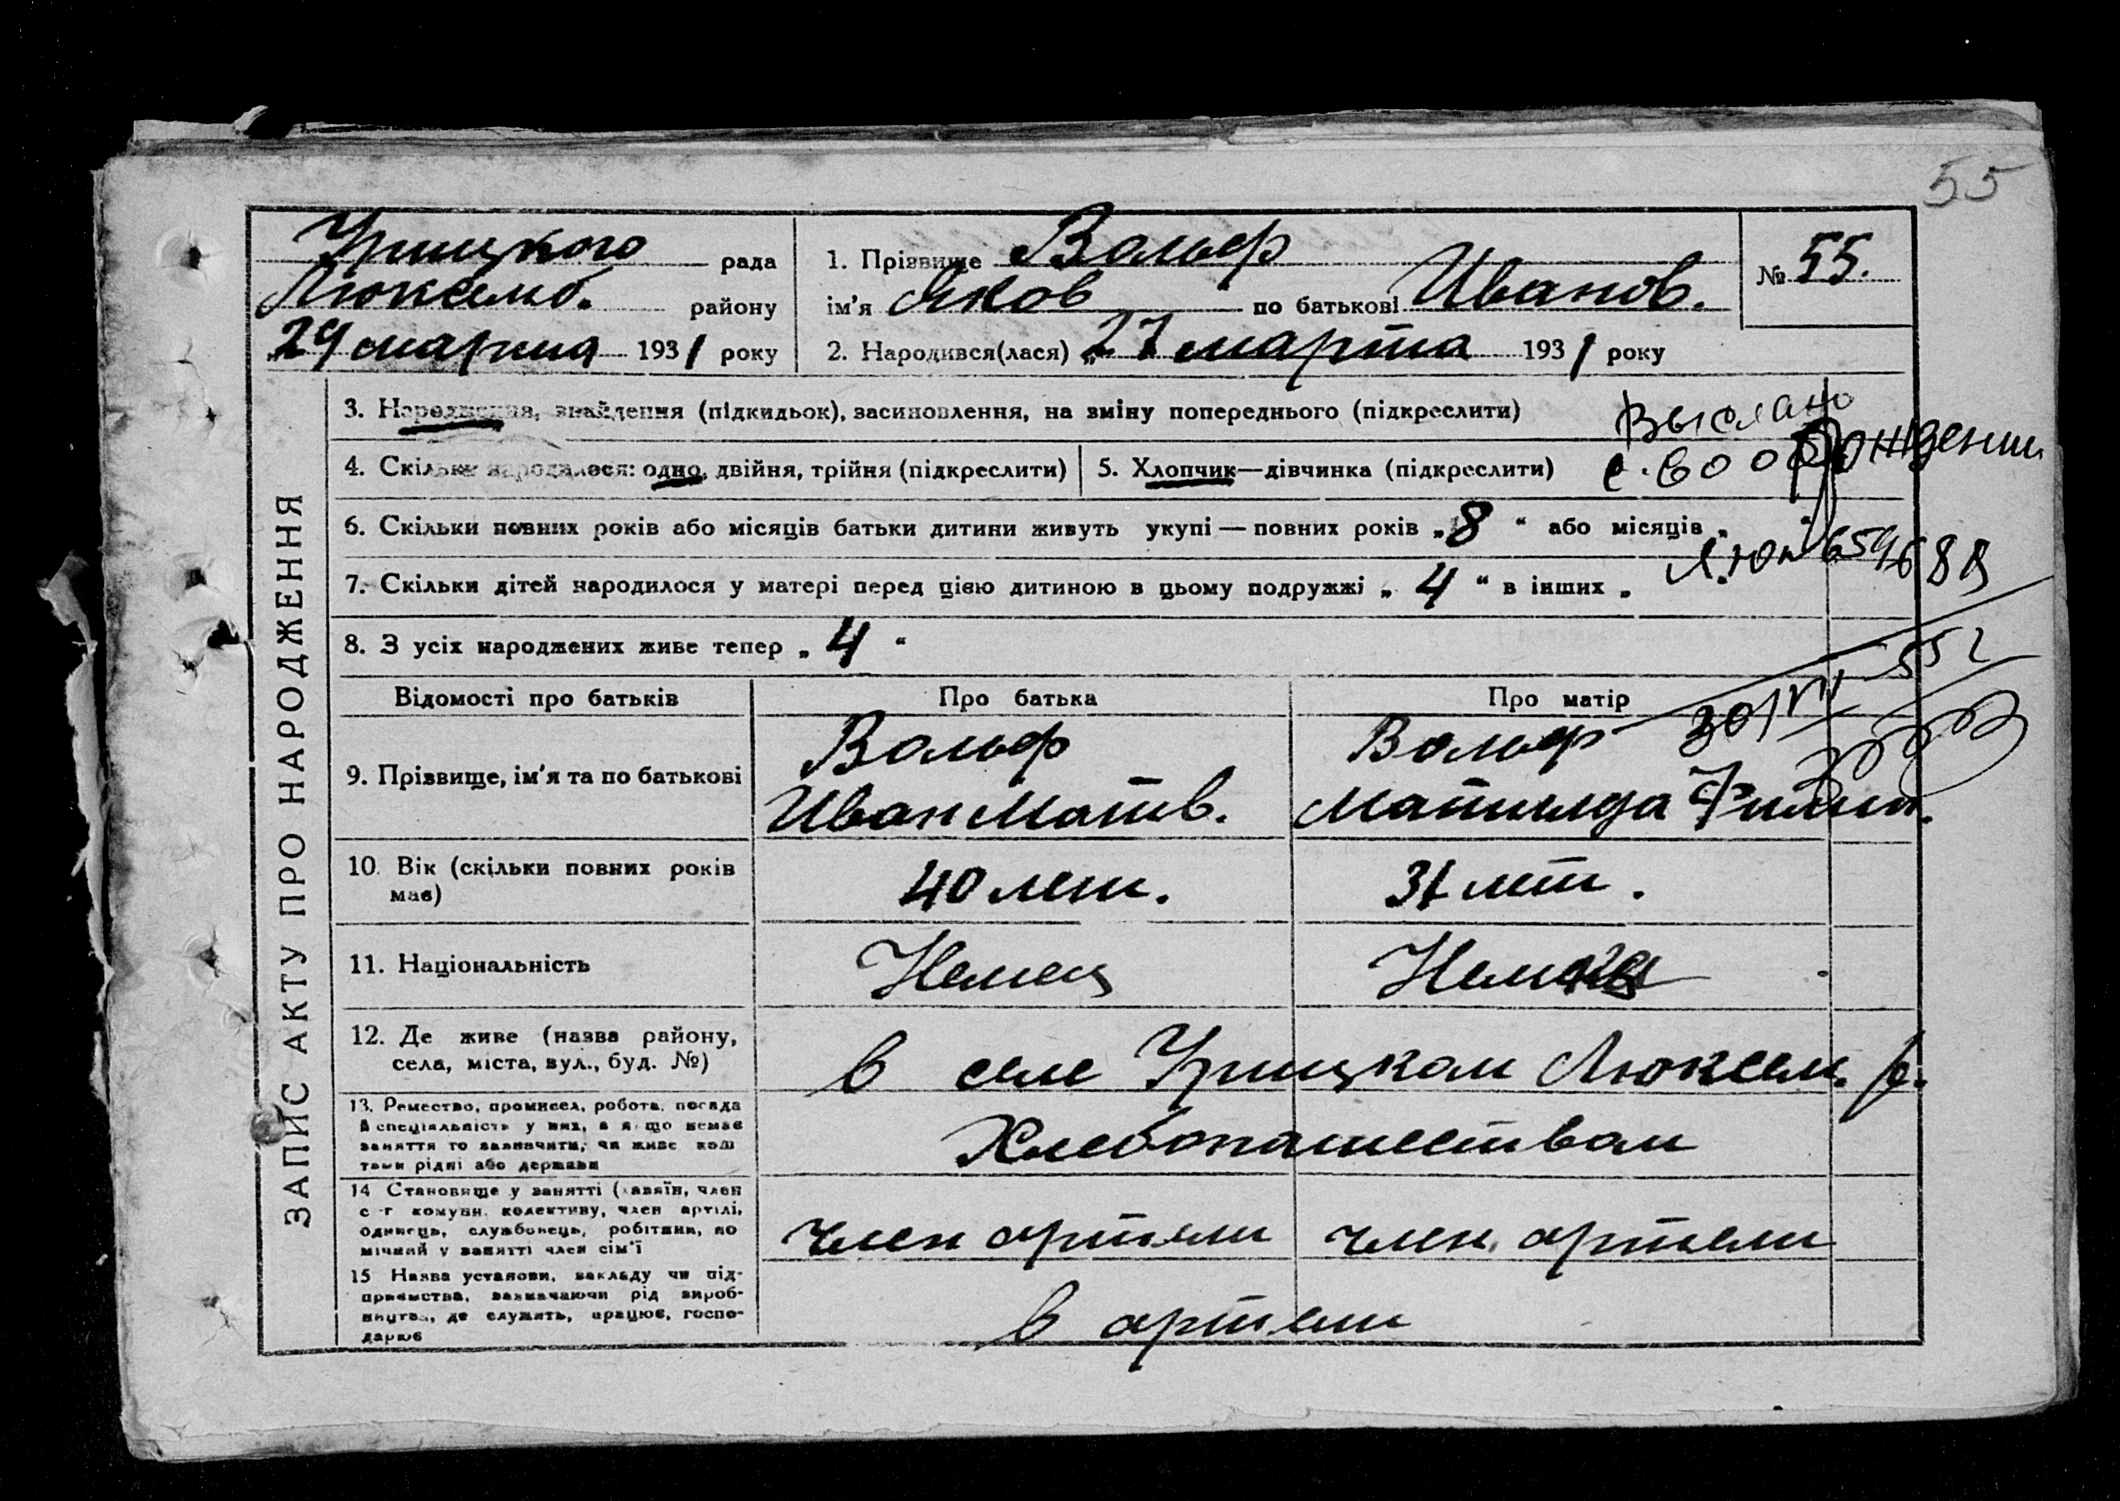 55
Урицкого рада
Люксемб. району
"29 марта 1931 року
1. Прізвище Вольф
ім'я Яков по батькові Иванов.
2. Народився(лася) "27 марта 1931 року
№ 55.
ЗАПИС АКТУ ПРО НАРОДЖЕННЯ
3. Народження, знайдення (підкидьок), засиновлення, на зміну попереднього (підкреслити)
Выслано
4. Скільки народилося: одно, двійня, трійня (підкреслити)
5. Хлопчик—дівчинка (підкреслити)
с-во о рождении
6. Скільки повних років або місяців батьки дитини живуть укупі — повних років „8“ або місяців „
7. Скільки дітей народилося у матері перед цією дитиною в цьому подружжі „4“ в інших „
8. З усіх народжених живе тепер „4“
Відомості про батьків
Про батька
Про матір
30/VII-55
9. Прізвище, ім'я та по батькові
Вольф
Иван Матв.
Вольф
Матильда Филип.
10. Вік (скільки повних років
має)
40 лет.
31 лет.
11. Національність
Немец
Немка
12. Де живе (назва району,
села, міста, вул., буд. №)
в селе Урицком Люксем. р.
13. Ремество, промисел, робота, посада
й спеціяльність у них, а якщо немає
заняття то зазначити, чи живе кош
тами рідні або держави
Хлебопашеством
14 Становище у занятті (хазяїн, член
с-г комуни, колективу, член артілі,
одинець, службовець, робітник, по
мічний у занятті член сім'ї
член артели
член артели
15 Назва установи, закладу чи під-
приємства, зазначаючи рід вироб-
ництва, де служить, працює, госпо-
дарює
в артели